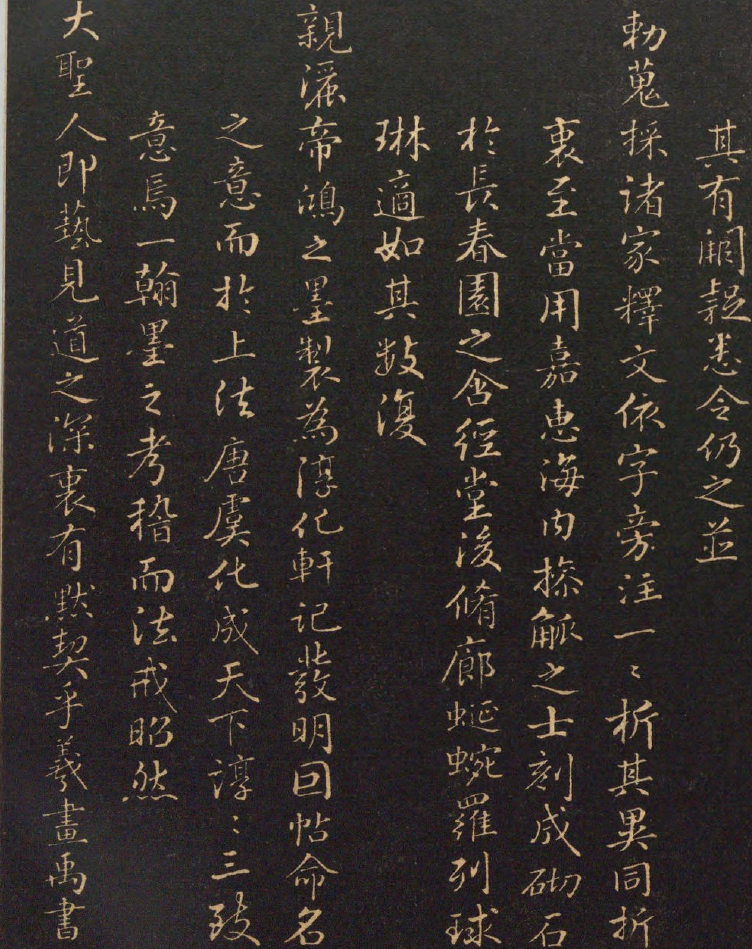 其有闕疑悉令仍之並
勅蒐採諸家釋文依字旁注一〻析其異同折
衷至當用嘉惠海內操觚之士刻成砌石
於長春園之含經堂後脩廊蜒蜿羅列球
琳適如其數復
親灑帝鴻之墨製為淳化軒記發明因帖命名
之意而於上法唐虞化成天下諄〻三致
意焉一翰墨之考稽而法戒昭然
大聖人即藝見道之深衷有默契乎羲畫禹書